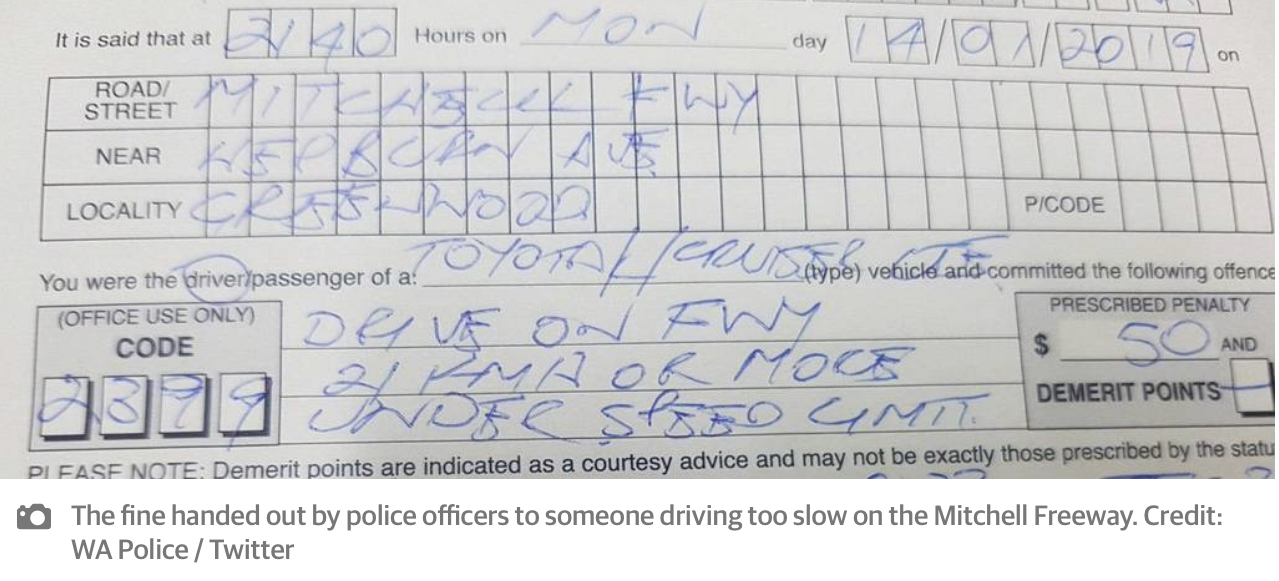 It is said that at 2140 Hours on MON day 14/01/2019 on
ROAD/
STREET MITCHELL FWY
NEAR HEPBURN AVE
LOCALITY GREENWOOD P/CODE
You were the driver/passenger of a: TOYOTA L/CRUISER (type) vehicle and committed the following offence
(OFFICE USE ONLY)
CODE
2399
DRIVE ON FWY
21 KMH OR MORE
UNDER SPEED LIMIT.
PRESCRIBED PENALTY
$ 50 AND
DEMERIT POINTS
PLEASE NOTE: Demerit points are indicated as a courtesy advice and may not be exactly those prescribed by the statu
The fine handed out by police officers to someone driving too slow on the Mitchell Freeway. Credit:
WA Police / Twitter